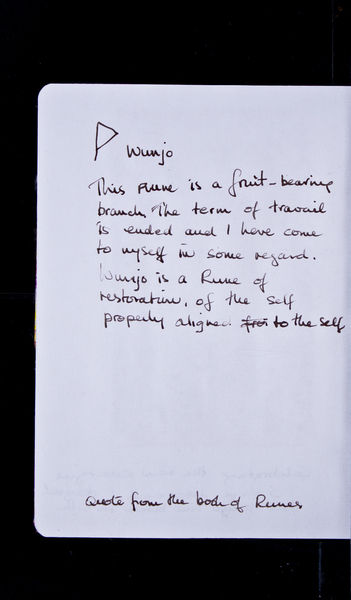 ᚹ Wunjo
This Rune is a fruit-bearing
branch. The term of travail
is ended and I have come
to myself in some regard.
Wunjo is a Rune of
restoration, of the self
properly aligned to the self
Quote from the book of Runes